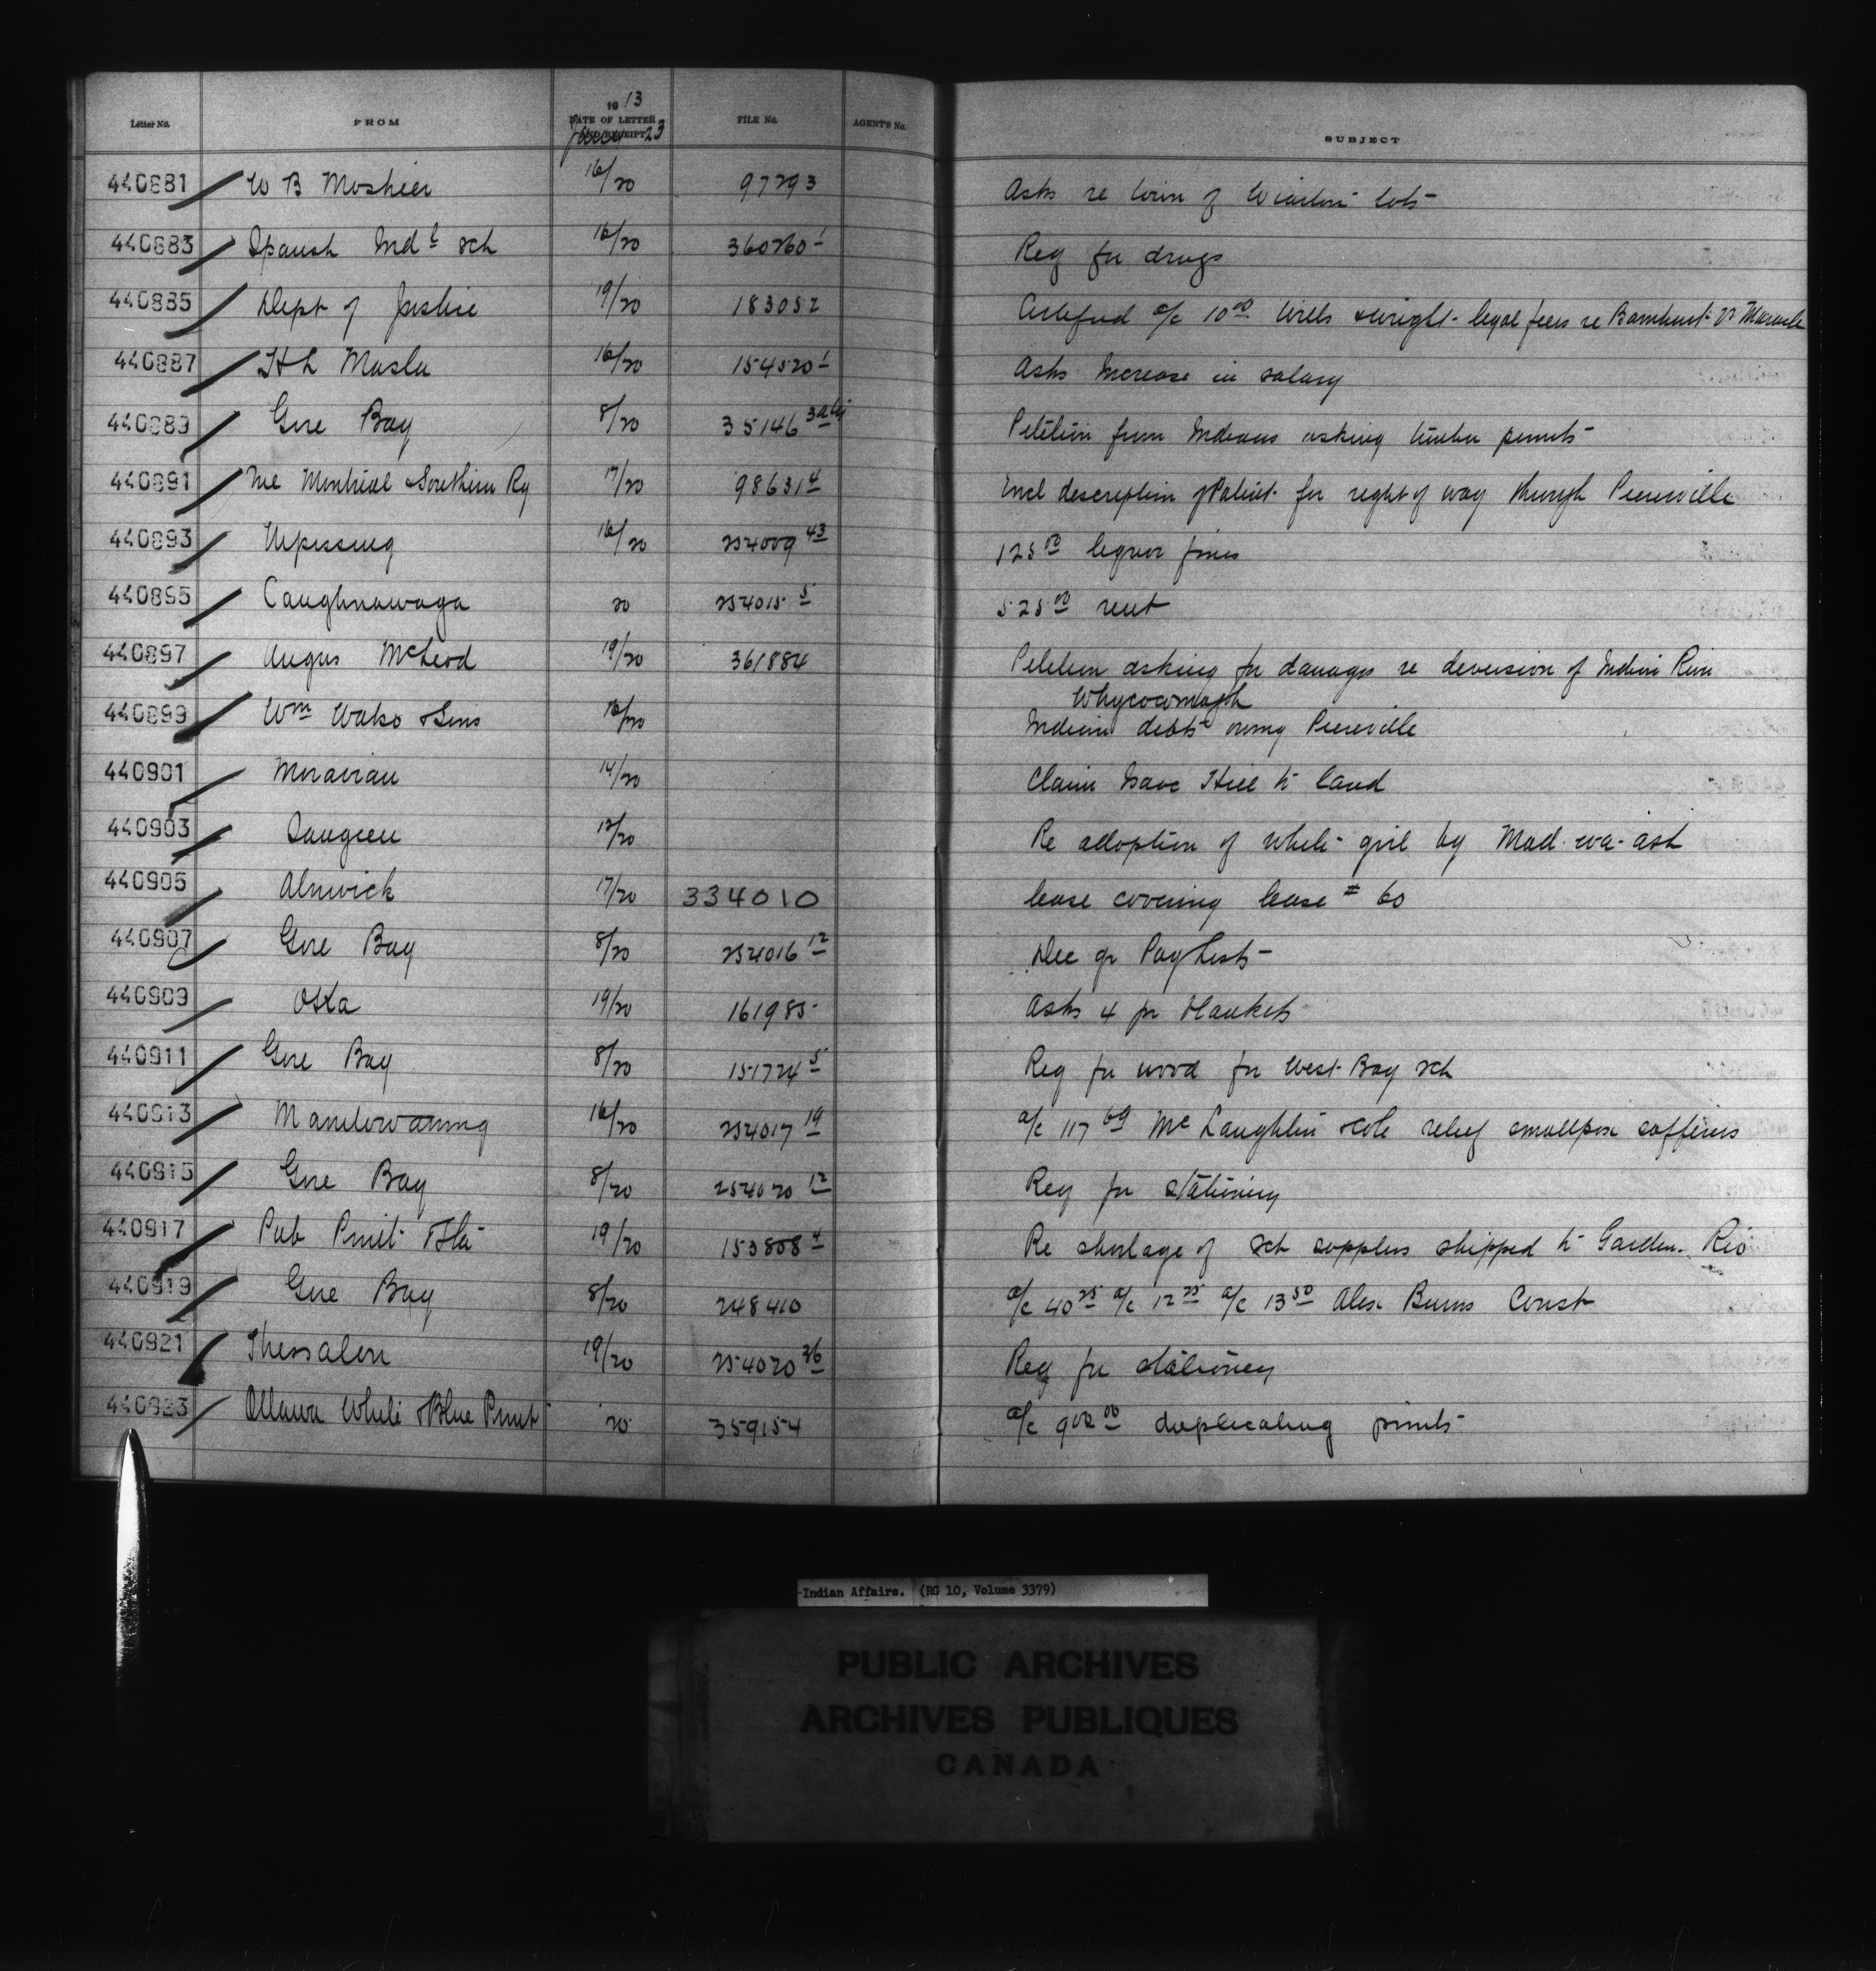 Letter No. FROM 1913 DATE OF LETTER AND RECEIPT June 23 FILE No. AGENT'S No. SUBJECT
440881 W B Moshier 16/20 97293 Asks re town of Wiarton lots
440883 Spanish Indl Sch 16/20 360260-1 Req for drugs
440885 Dept of Justice 19/20 183052 Certified a/c 10.00 Wills & Wright legal fees re Barnhart vs Maracle
440887 H L 16/20 154520-1 Asks Increase in salary
440889 Gore Bay 8/20 35146 Petition from Indians asking timber permits
440891 The Montreal & Southern Ry 17/20 98631-4 Encl description of Patent for right of way through Pierreville
440893 Nipissing 16/20 254009-43 125.00 liquor fines
440895 Caughnawaga 20 254015-5 525.00 rent
440897 Angus McLeod 19/20 361884 Petition asking for damages re diversion of Indian River
Whycocomagh
440899 Wm & Sons 16/20 Indian debts owing Pierreville
440901 Moravian 14/20 Claim Isaac Hill to land
440903 Saugeen 12/20 Re adoption of white girl by Mad-wa-ash
440905 Alnwick 17/20 334010 lease covering lease # 60
440907 Gore Bay 8/20 254016-12 Dec qr Pay Lists
440909 Oka 19/20 161985 Asks 4 pr blankets
440911 Gore Bay 8/20 151724-5 Req for wood for West Bay sch
440913 Manitowaning 16/20 254017-19 a/c 117.69 McLaughlin & Co relief smallpox sufferers
440915 Gore Bay 8/20 254020-12 Req for stationery
440917 Pub Print & Sta 19/20 153808-4 Re shortage of sch supplies shipped to Garden Riv
440919 Gore Bay 8/20 248410 a/c 40.25 a/c 12.75 a/c 13.50 Alex Burns Const
440921 Thessalon 19/20 254020-26 Req for stationery
440923 Ottawa White & Blue Print 20 359154 a/c duplicating prints
-Indian Affairs. (RG 10, Volume 3379)
PUBLIC ARCHIVES
ARCHIVES PUBLIQUES
CANADA